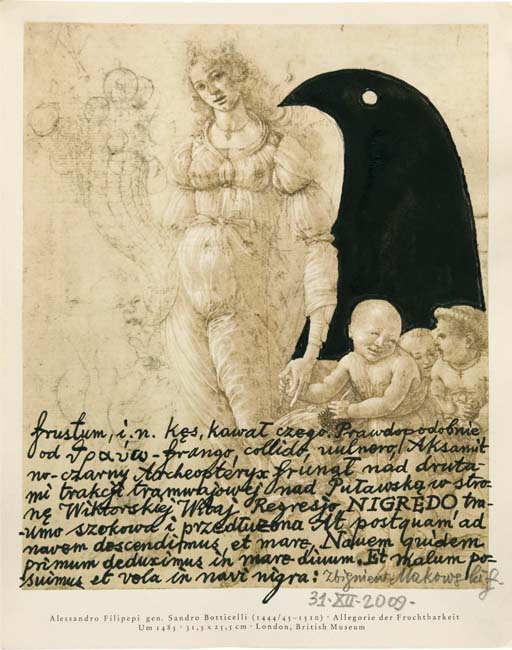 frustum, i. n. kęs, kawał czego. Prawdopodobnie
od θραυω-frango, collido, vulnero, Aksamit
no-czarny Archeopteryx frunął nad druta-
mi trakcji tramwajowej nad Puławską w stro-
nę Wiktorskiej Witaj Regresjo, NIGREDO tra-
umo szokowa i przedłużona At postquam ad
navem descendimus, et mare, Nauem quidem
primum deduximus in mare diuum. Et malum po-
suimus et vela in navi nigra: Zbigniew Makowski f.
31·XII-2009-
Alessandro Filipepi gen. Sandro Botticelli (1444/45–1510) · Allegorie der Fruchtbarkeit
Um 1485 · 31,5 x 25,5 cm · London, British Museum